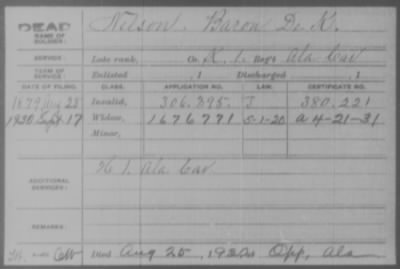 DEAD
NAME OF SOLDIER:
Nelson, Baron De K.
SERVICE:
Late rank, Co. K, 1 Reg't Ala Cav
TERM OF SERVICE:
Enlisted , 1 Discharged , 1
DATE OF FILING. CLASS. APPLICATION NO. LAW. CERTIFICATE NO.
1879 Aug 25 Invalid, 306.395. J 380.221
1930 Sept. 17 Widow, 1676771 5-1-20 A 4-21-31
Minor,
ADDITIONAL SERVICES:
K 1. Ala Cav
REMARKS:
Died Aug 25, 1930 Opp, Ala